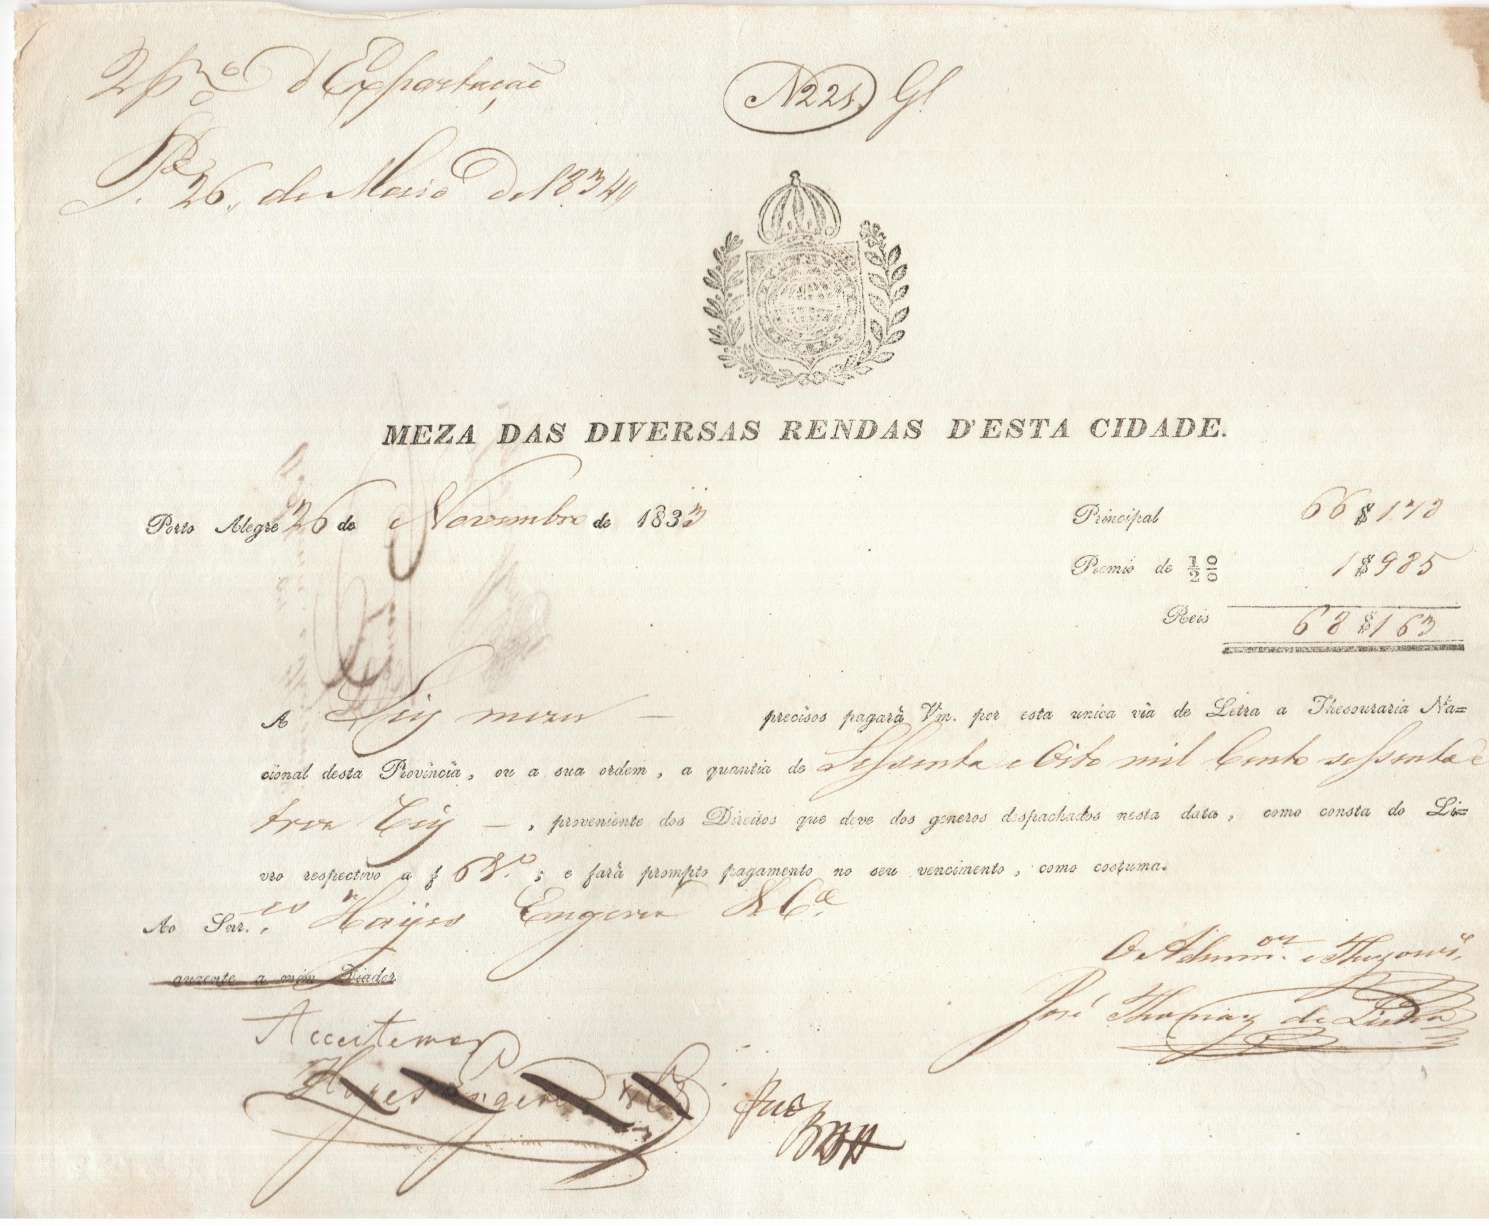 d'Exportação
N 221 Gl
26 de Maio de 1834
MEZA DAS DIVERSAS RENDAS D'ESTA CIDADE.
Porto Alegre 26 de Novembro de 1833
Principal 66$178
Premio de 1/2 0/0 1$985
Reis 68$163
A Seis mezes — precisos pagará Vm. por esta unica via de Letra a Thesouraria Na=
cional desta Provincia, ou a sua ordem, a quantia de Sessenta e Oito mil Cento sessenta e
tres reis —, proveniente dos Direitos que deve dos generos despachados nesta data, como consta do Li=
vro respectivo a f 68.; e fará prompto pagamento no seu vencimento, como costuma.
Ao Snr.es Hayes Engerer & Ca.
auzente a mim Fiador
O Admor. e Thezour.
José Thomaz de Lima
Acceitamos
Hayes Engerer & C